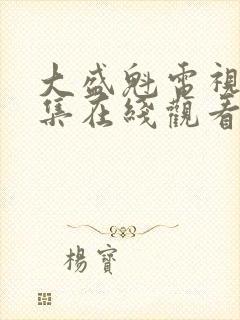 大盛魁電視
集在綫觀看
楊寶